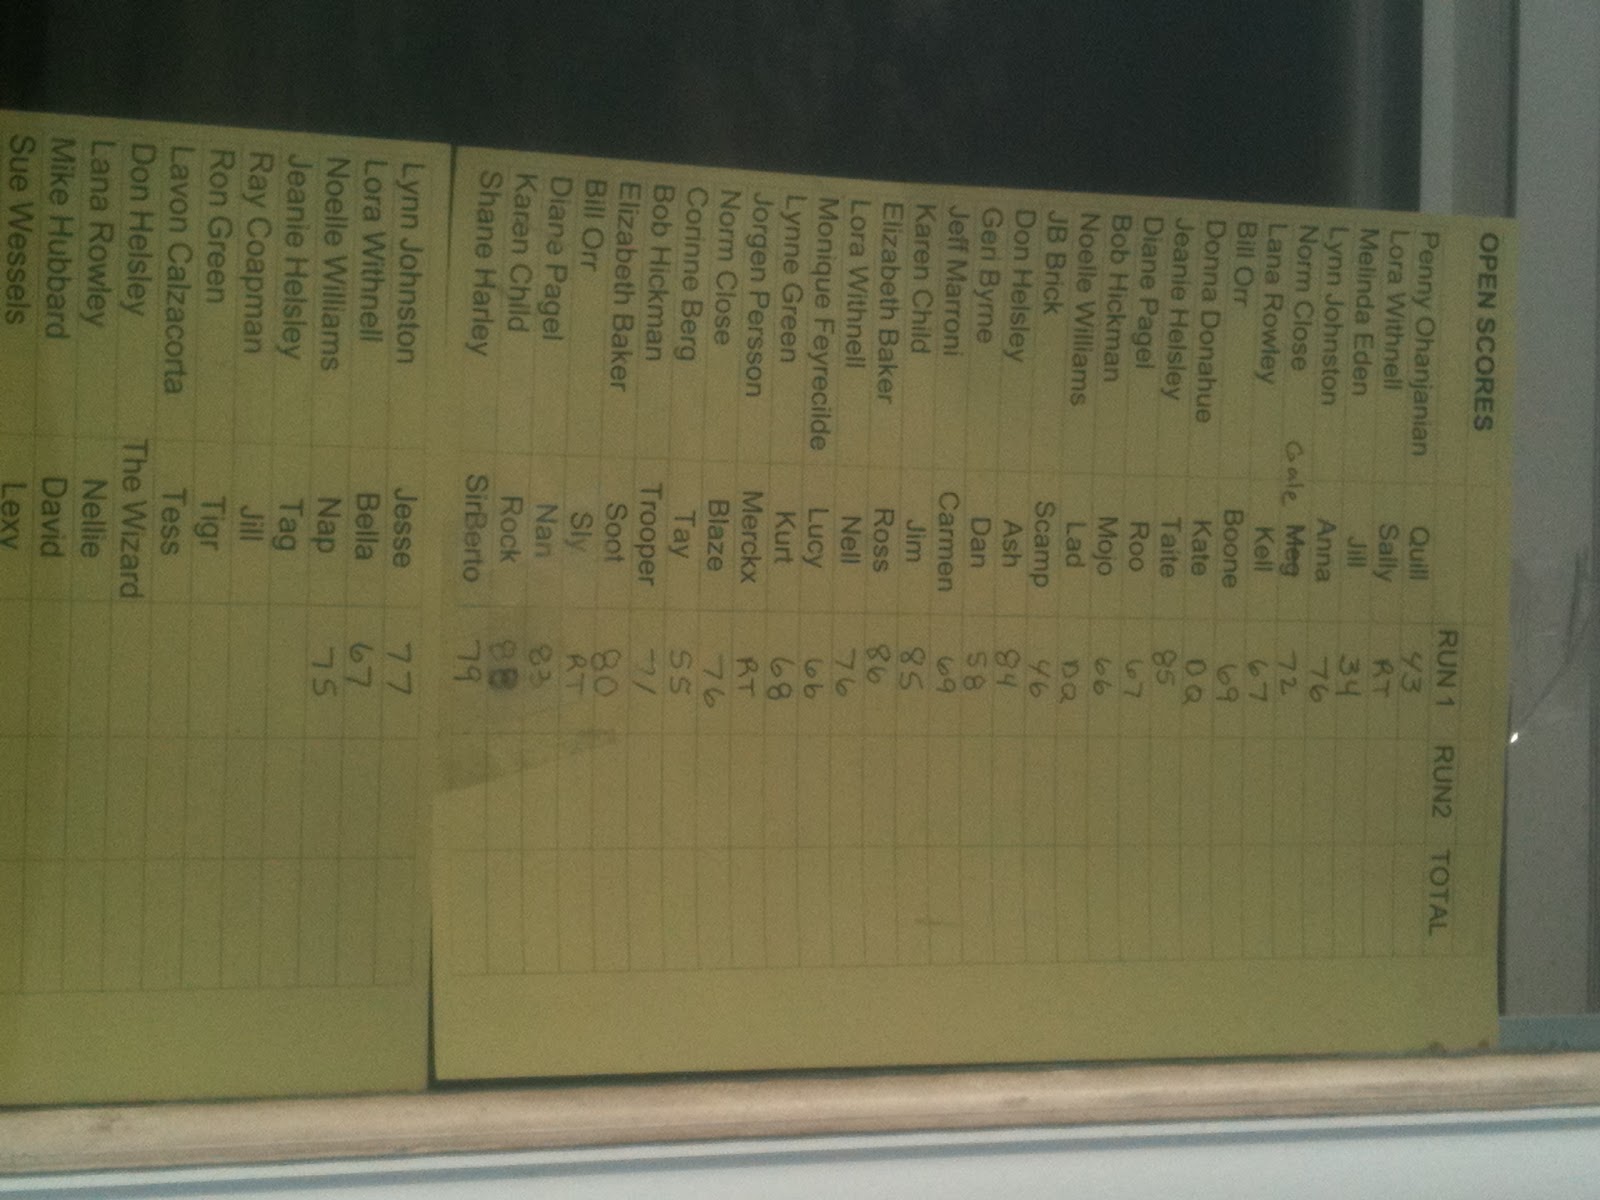 OPEN SCORES
RUN 1 RUN2 TOTAL
Penny Ohanjanian Quill 43
Lora Withnell Sally RT
Melinda Eden Jill 34
Lynn Johnston Anna 76
Norm Close Gale Meg 72
Lana Rowley Kell 67
Bill Orr Boone 69
Donna Donahue Kate DQ
Jeanie Helsley Taite 85
Diane Pagel Roo 67
Bob Hickman Mojo 66
Noelle Williams Lad DQ
JB Brick Scamp 46
Don Helsley Ash 84
Geri Byrne Dan 58
Jeff Marroni Carmen 69
Karen Child Jim 85
Elizabeth Baker Ross 86
Lora Withnell Nell 76
Monique Feyrecilde Lucy 66
Lynne Green Kurt 68
Jorgen Persson Merckx RT
Norm Close Blaze 76
Corinne Berg Tay 55
Bob Hickman Trooper 71
Elizabeth Baker Soot 80
Bill Orr Sly RT
Diane Pagel Nan 83
Karen Child Rock
Shane Harley SirBerto 79
Lynn Johnston Jesse 77
Lora Withnell Bella 67
Noelle Williams Nap 75
Jeanie Helsley Tag
Ray Coapman Jill
Ron Green Tigr
Lavon Calzacorta Tess
Don Helsley The Wizard
Lana Rowley Nellie
Mike Hubbard David
Sue Wessels Lexy